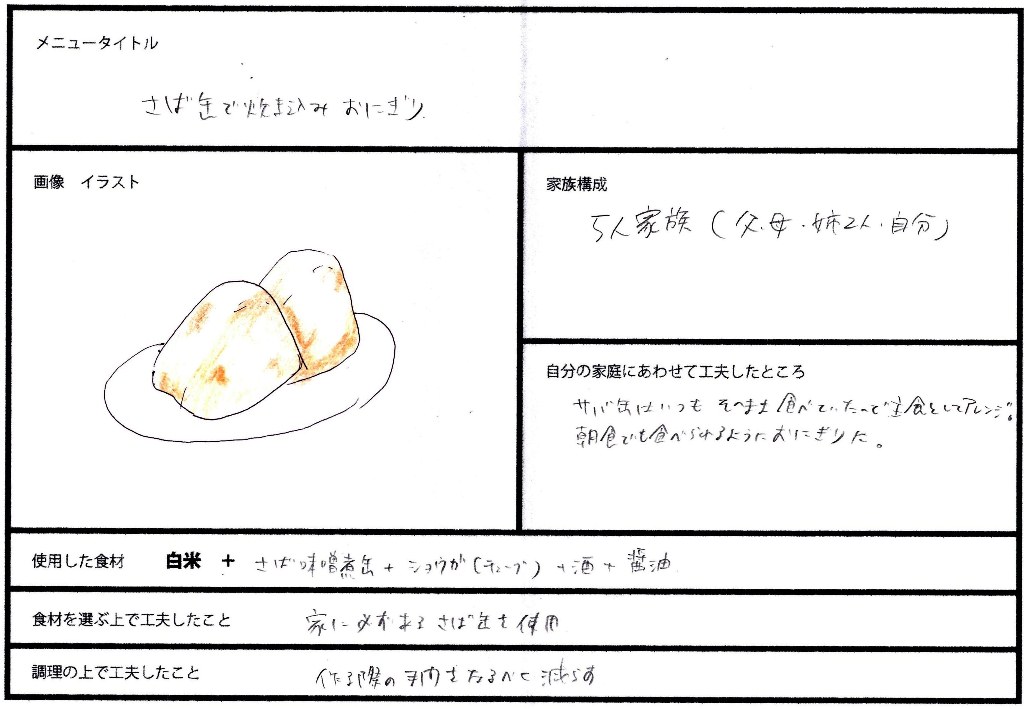 メニュータイトル
さば缶で炊き込みおにぎり
画像　イラスト
家族構成
5人家族（父・母・姉2人・自分）
自分の家庭にあわせて工夫したところ
サバ缶はいつもそのまま食べていたので主食としてアレンジ。
朝食でも食べられるようにおにぎりに。
使用した食材　白米　+　さば味噌煮缶 + ショウガ（チューブ）+ 酒 + 醤油
食材を選ぶ上で工夫したこと　家に必ずあるさば缶を使用
調理の上で工夫したこと　作る際の手間をなるべく減らす